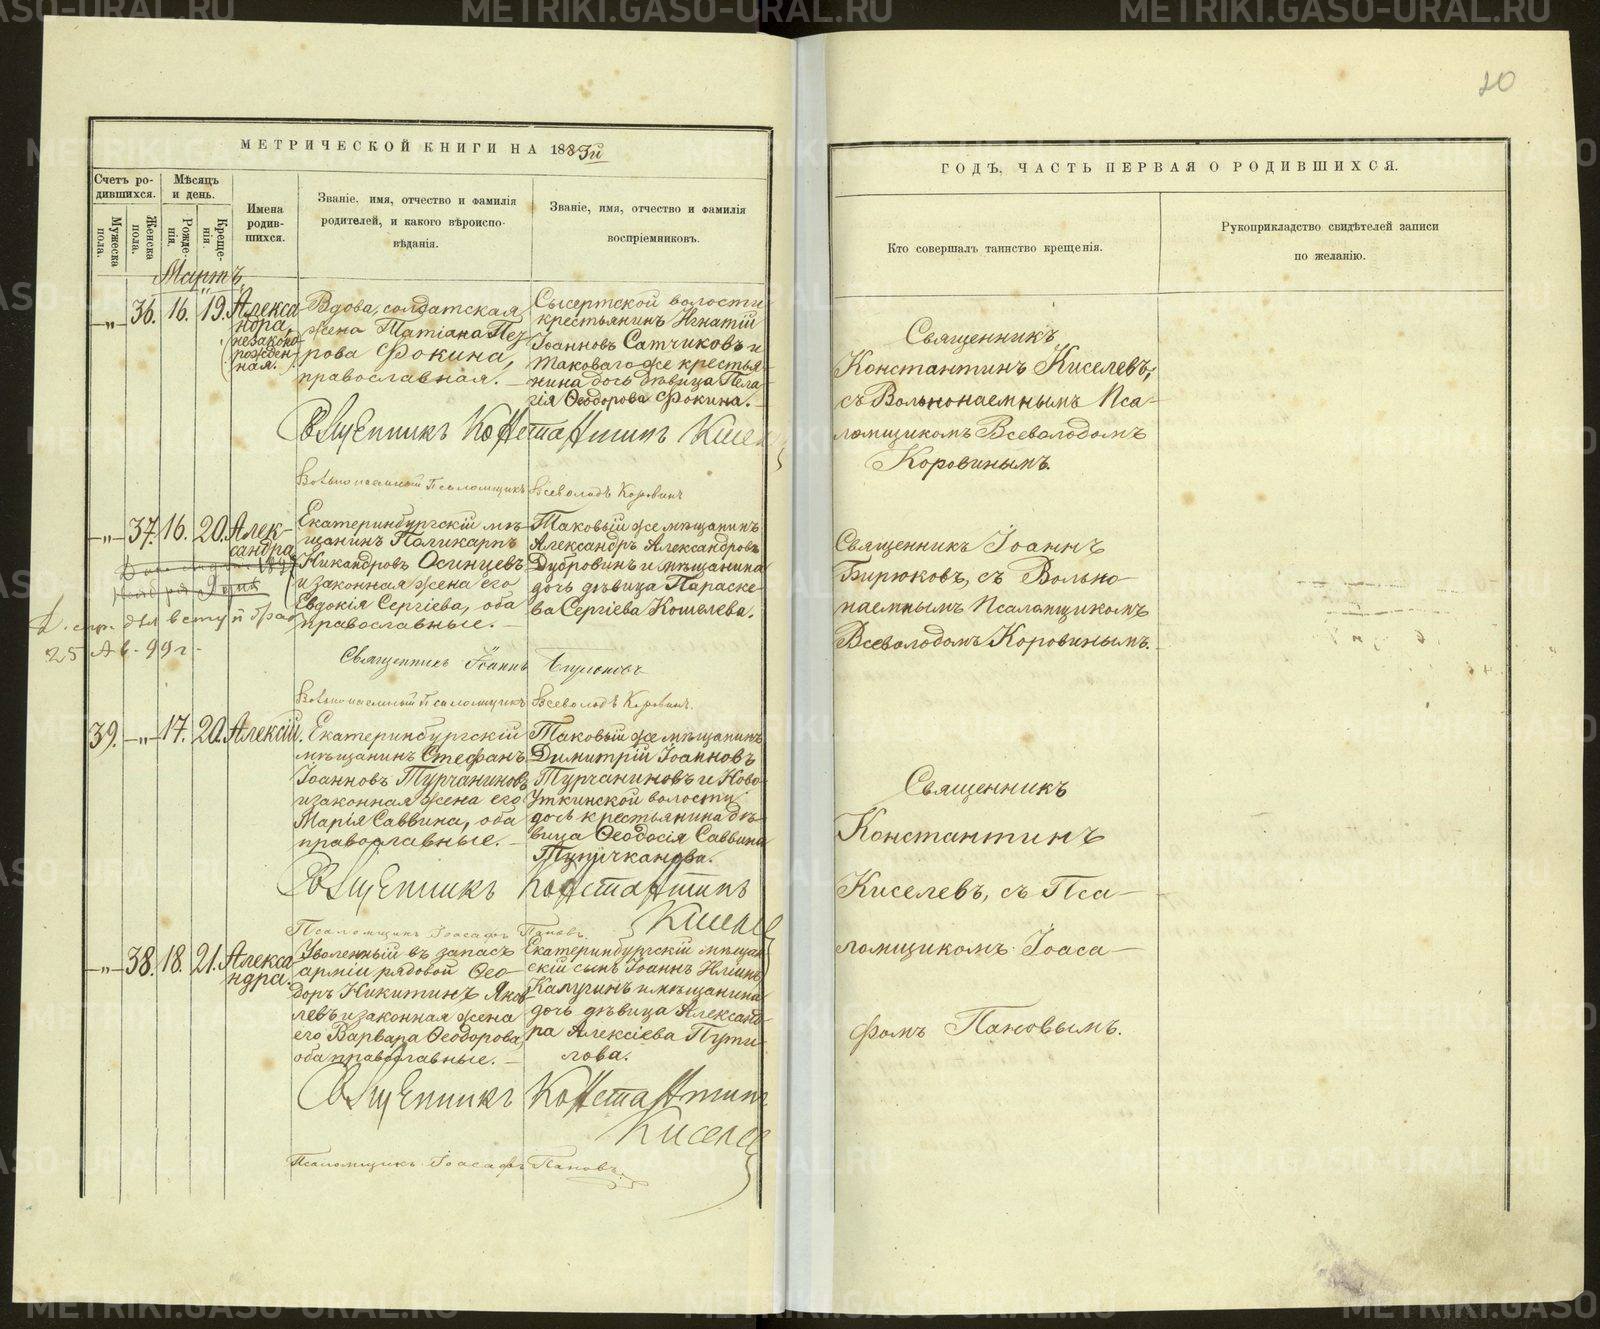 METRIKI.GASO-URAL.RU
20
МЕТРИЧЕСКОЙ КНИГИ НА 1883й
ГОДЪ, ЧАСТЬ ПЕРВАЯ О РОДИВШИХСЯ.
Счетъ ро-
дившихся.
Мужеска
пола.
Женска
пола.
Мѣсяцъ
и день.
Рожде-
нія.
Креще-
нія.
Имена
родив-
шихся.
Званіе, имя, отчество и фамилія
родителей, и какого вѣроиспо-
вѣданія.
Званіе, имя, отчество и фамилія
воспріемниковъ.
Кто совершалъ таинство крещенія.
Рукоприкладство свидѣтелей записи
по желанію.
Мартъ
—„— 36. 16. 19.
Алекса
ндра,
(незакон
рожден-
ная.)
Вдова, солдатская
жена Татіана Пет
рова Фокина,
православная. —
Сысертской волости
крестьянинъ Игнатій
Іоанновъ Сатчиковъ и
таковаго же крестья
нина дочь дѣвица Пела
гія Ѳеодорова Фокина. —
Священникъ Константинъ Киселевъ
Вольнонаемный Псаломщикъ Всеволодъ Коровинъ
Священникъ
Константинъ Киселевъ;
съ Вольнонаемнымъ Пса-
ломщикомъ Всеволодомъ
Коровинымъ.
—„— 37. 16. 20.
Алек-
сандра
Екатеринбургскій мѣ-
щанинъ Поликарпъ
Никандровъ Осинцевъ
и законная жена его
Евдокія Сергіева, оба
православные. —
Таковый же мѣщанинъ
Александръ Александровъ
Дубровинъ и мѣщанина
дочь дѣвица Параске-
ва Сергіева Кошелева.
25 Ав. 99 г.
Священникъ Іоаннъ Бирюковъ
Вольнонаемный Псаломщикъ Всеволодъ Коровинъ.
Священникъ Іоаннъ
Бирюковъ, съ Вольно
наемнымъ Псаломщикомъ
Всеволодомъ Коровинымъ.
39. —„— 17. 20. Алексій.
Екатеринбургскій
мѣщанинъ Стефанъ
Іоанновъ Турчаниновъ
и законная жена его
Марія Саввина, оба
православные. —
Таковый же мѣщанинъ
Димитрій Іоанновъ
Турчаниновъ и Ново
Уткинской волости
дочь крестьянина дѣ-
вица Ѳеодосія Саввина
Священникъ Константинъ
Киселевъ
Псаломщикъ Іоасафъ Пановъ.
Священникъ
Константинъ
Киселевъ, съ Пса-
ломщикомъ Іоаса-
фомъ Пановымъ.
—„— 38. 18. 21.
Алекса
ндра.
Уволенный въ запасъ
арміи рядовой Ѳео-
доръ Никитинъ Яков
левъ и законная жена
его Варвара Ѳеодорова,
оба православные. —
Екатеринбургскій мѣщан
скій сынъ Іоаннъ Ильинъ
Калугинъ и мѣщанина
дочь дѣвица Александ-
ра Алексіева Пути
лова.
Священникъ Константинъ
Киселевъ
Псаломщикъ Іоасафъ Пановъ.